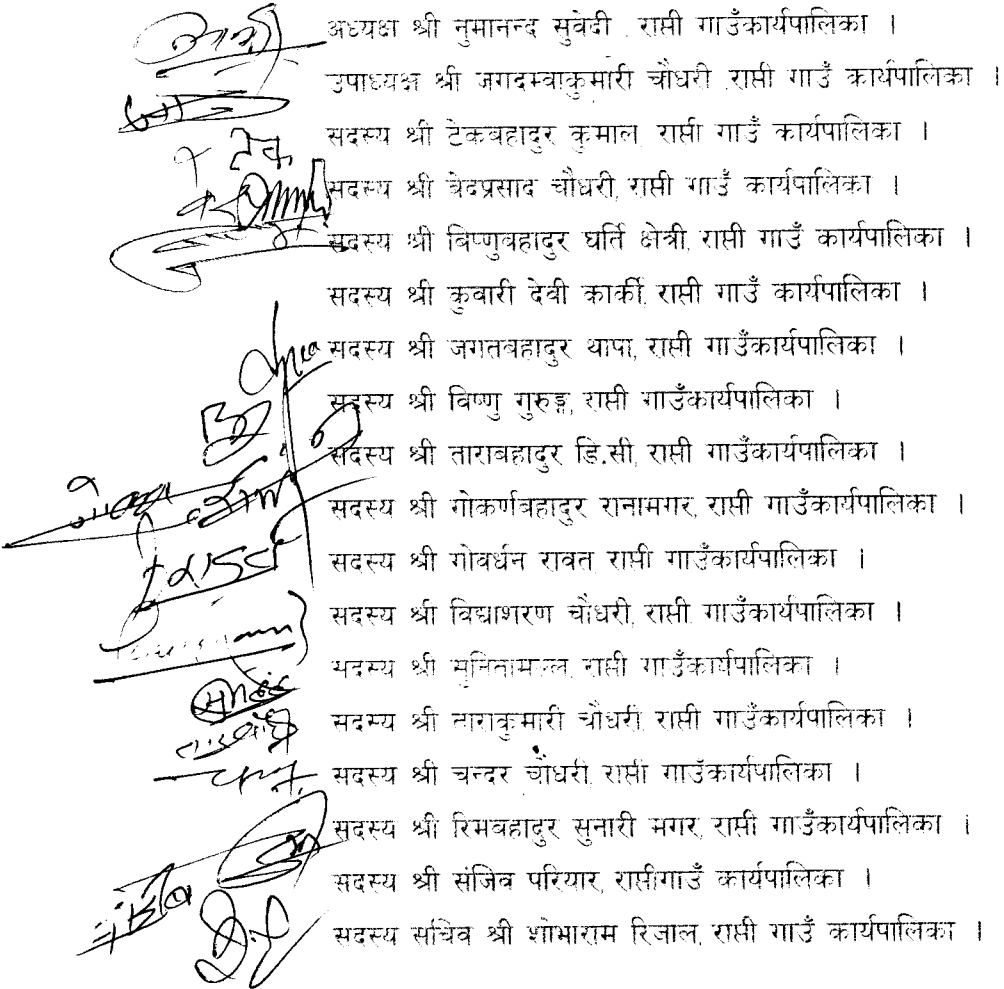 अध्यक्ष श्री नुमानन्द सुवेदी , राप्ती गाउँकार्यपालिका ।
उपाध्यक्ष श्री जगदम्वाकुमारी चौधरी, राप्ती गाउँ कार्यपालिका ।
सदस्य श्री टेकबहादुर कुमाल, राप्ती गाउँ कार्यपालिका ।
टेक
सदस्य श्री बेदप्रसाद चौधरी, राप्ती गाउँ कार्यपालिका ।
सदस्य श्री बिष्णुबहादुर घर्ति क्षेत्री, राप्ती गाउँ कार्यपालिका ।
सदस्य श्री कुवारी देवी कार्की, राप्ती गाउँ कार्यपालिका ।
सदस्य श्री जगतबहादुर थापा, राप्ती गाउँकार्यपालिका ।
सदस्य श्री विष्णु गुरुङ्ग, राप्ती गाउँकार्यपालिका ।
सदस्य श्री ताराबहादुर डि.सी, राप्ती गाउँकार्यपालिका ।
सदस्य श्री गोकर्णबहादुर रानामगर, राप्ती गाउँकार्यपालिका ।
सदस्य श्री गोवर्धन रावत, राप्ती गाउँकार्यपालिका ।
सदस्य श्री विद्याशरण चौधरी, राप्ती गाउँकार्यपालिका ।
सदस्य श्री सुनितामल्ल, राप्ती गाउँकार्यपालिका ।
सदस्य श्री ताराकुमारी चौधरी, राप्ती गाउँकार्यपालिका ।
सदस्य श्री चन्दर चौधरी, राप्ती गाउँकार्यपालिका ।
सदस्य श्री रिमबहादुर सुनारी मगर, राप्ती गाउँकार्यपालिका ।
सदस्य श्री संजिव परियार, राप्तीगाउँ कार्यपालिका ।
सदस्य सचिव श्री शोभाराम रिजाल, राप्ती गाउँ कार्यपालिका ।